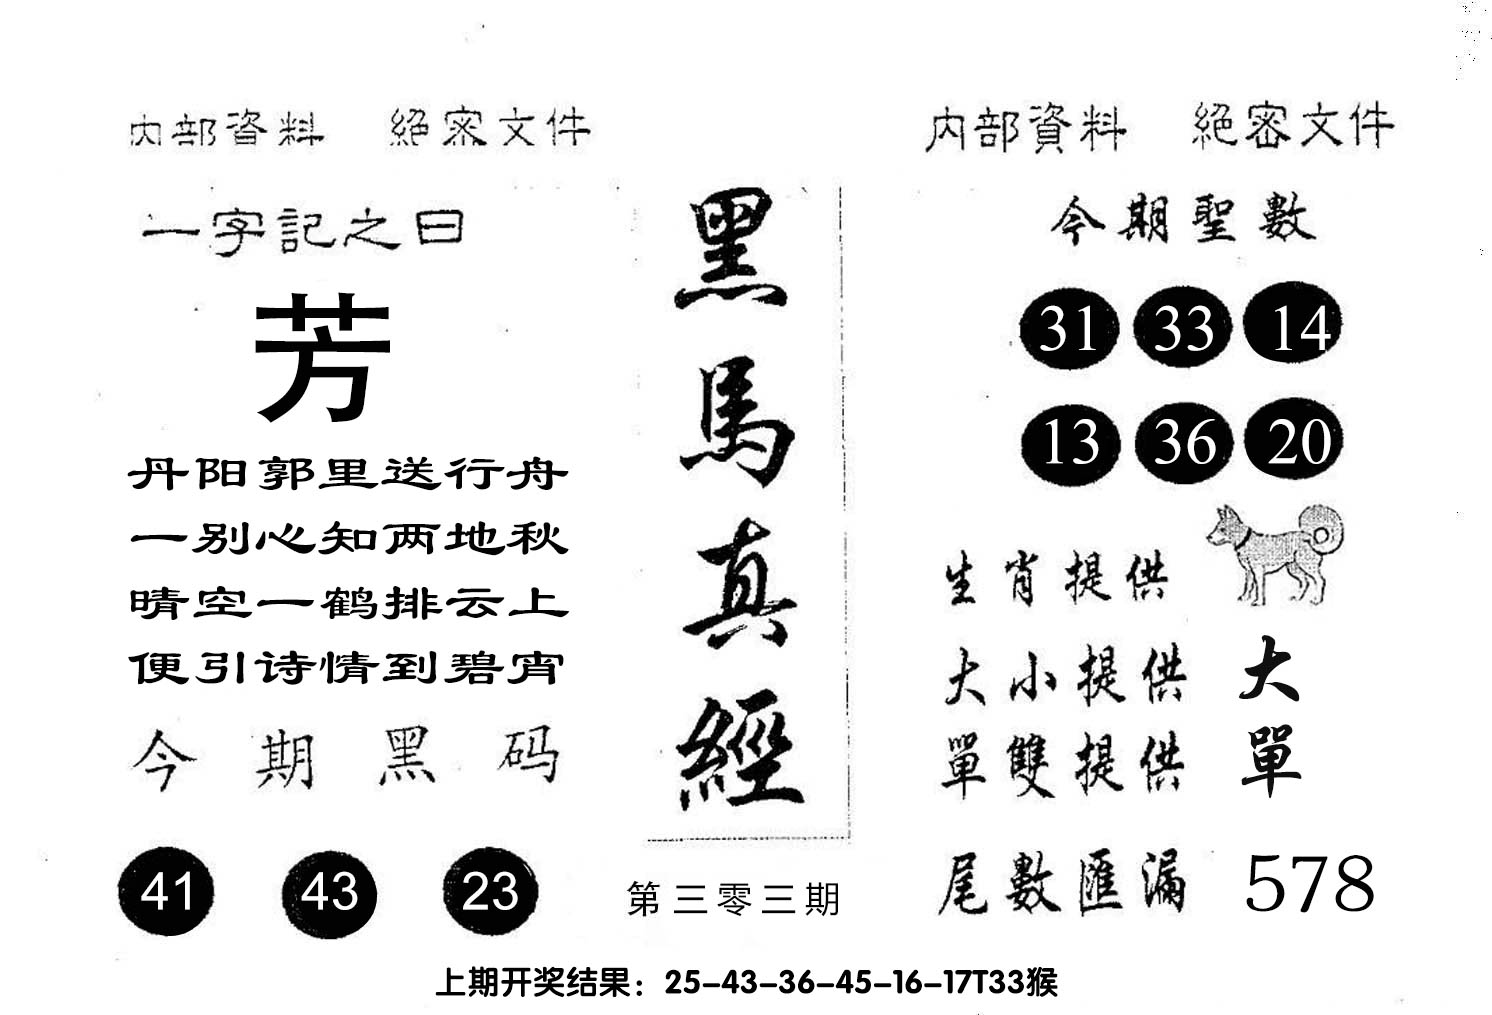 内部資料 絕密文件
一字記之曰
芳
丹阳郭里送行舟
一别心知两地秋
晴空一鹤排云上
便引诗情到碧宵
今期黑码
41 43 23
黑馬真經
第三零三期
内部資料 絕密文件
今期聖數
31 33 14
13 36 20
生肖提供
大小提供 大
單雙提供 單
尾數匯漏 578
上期开奖结果：25-43-36-45-16-17T33猴